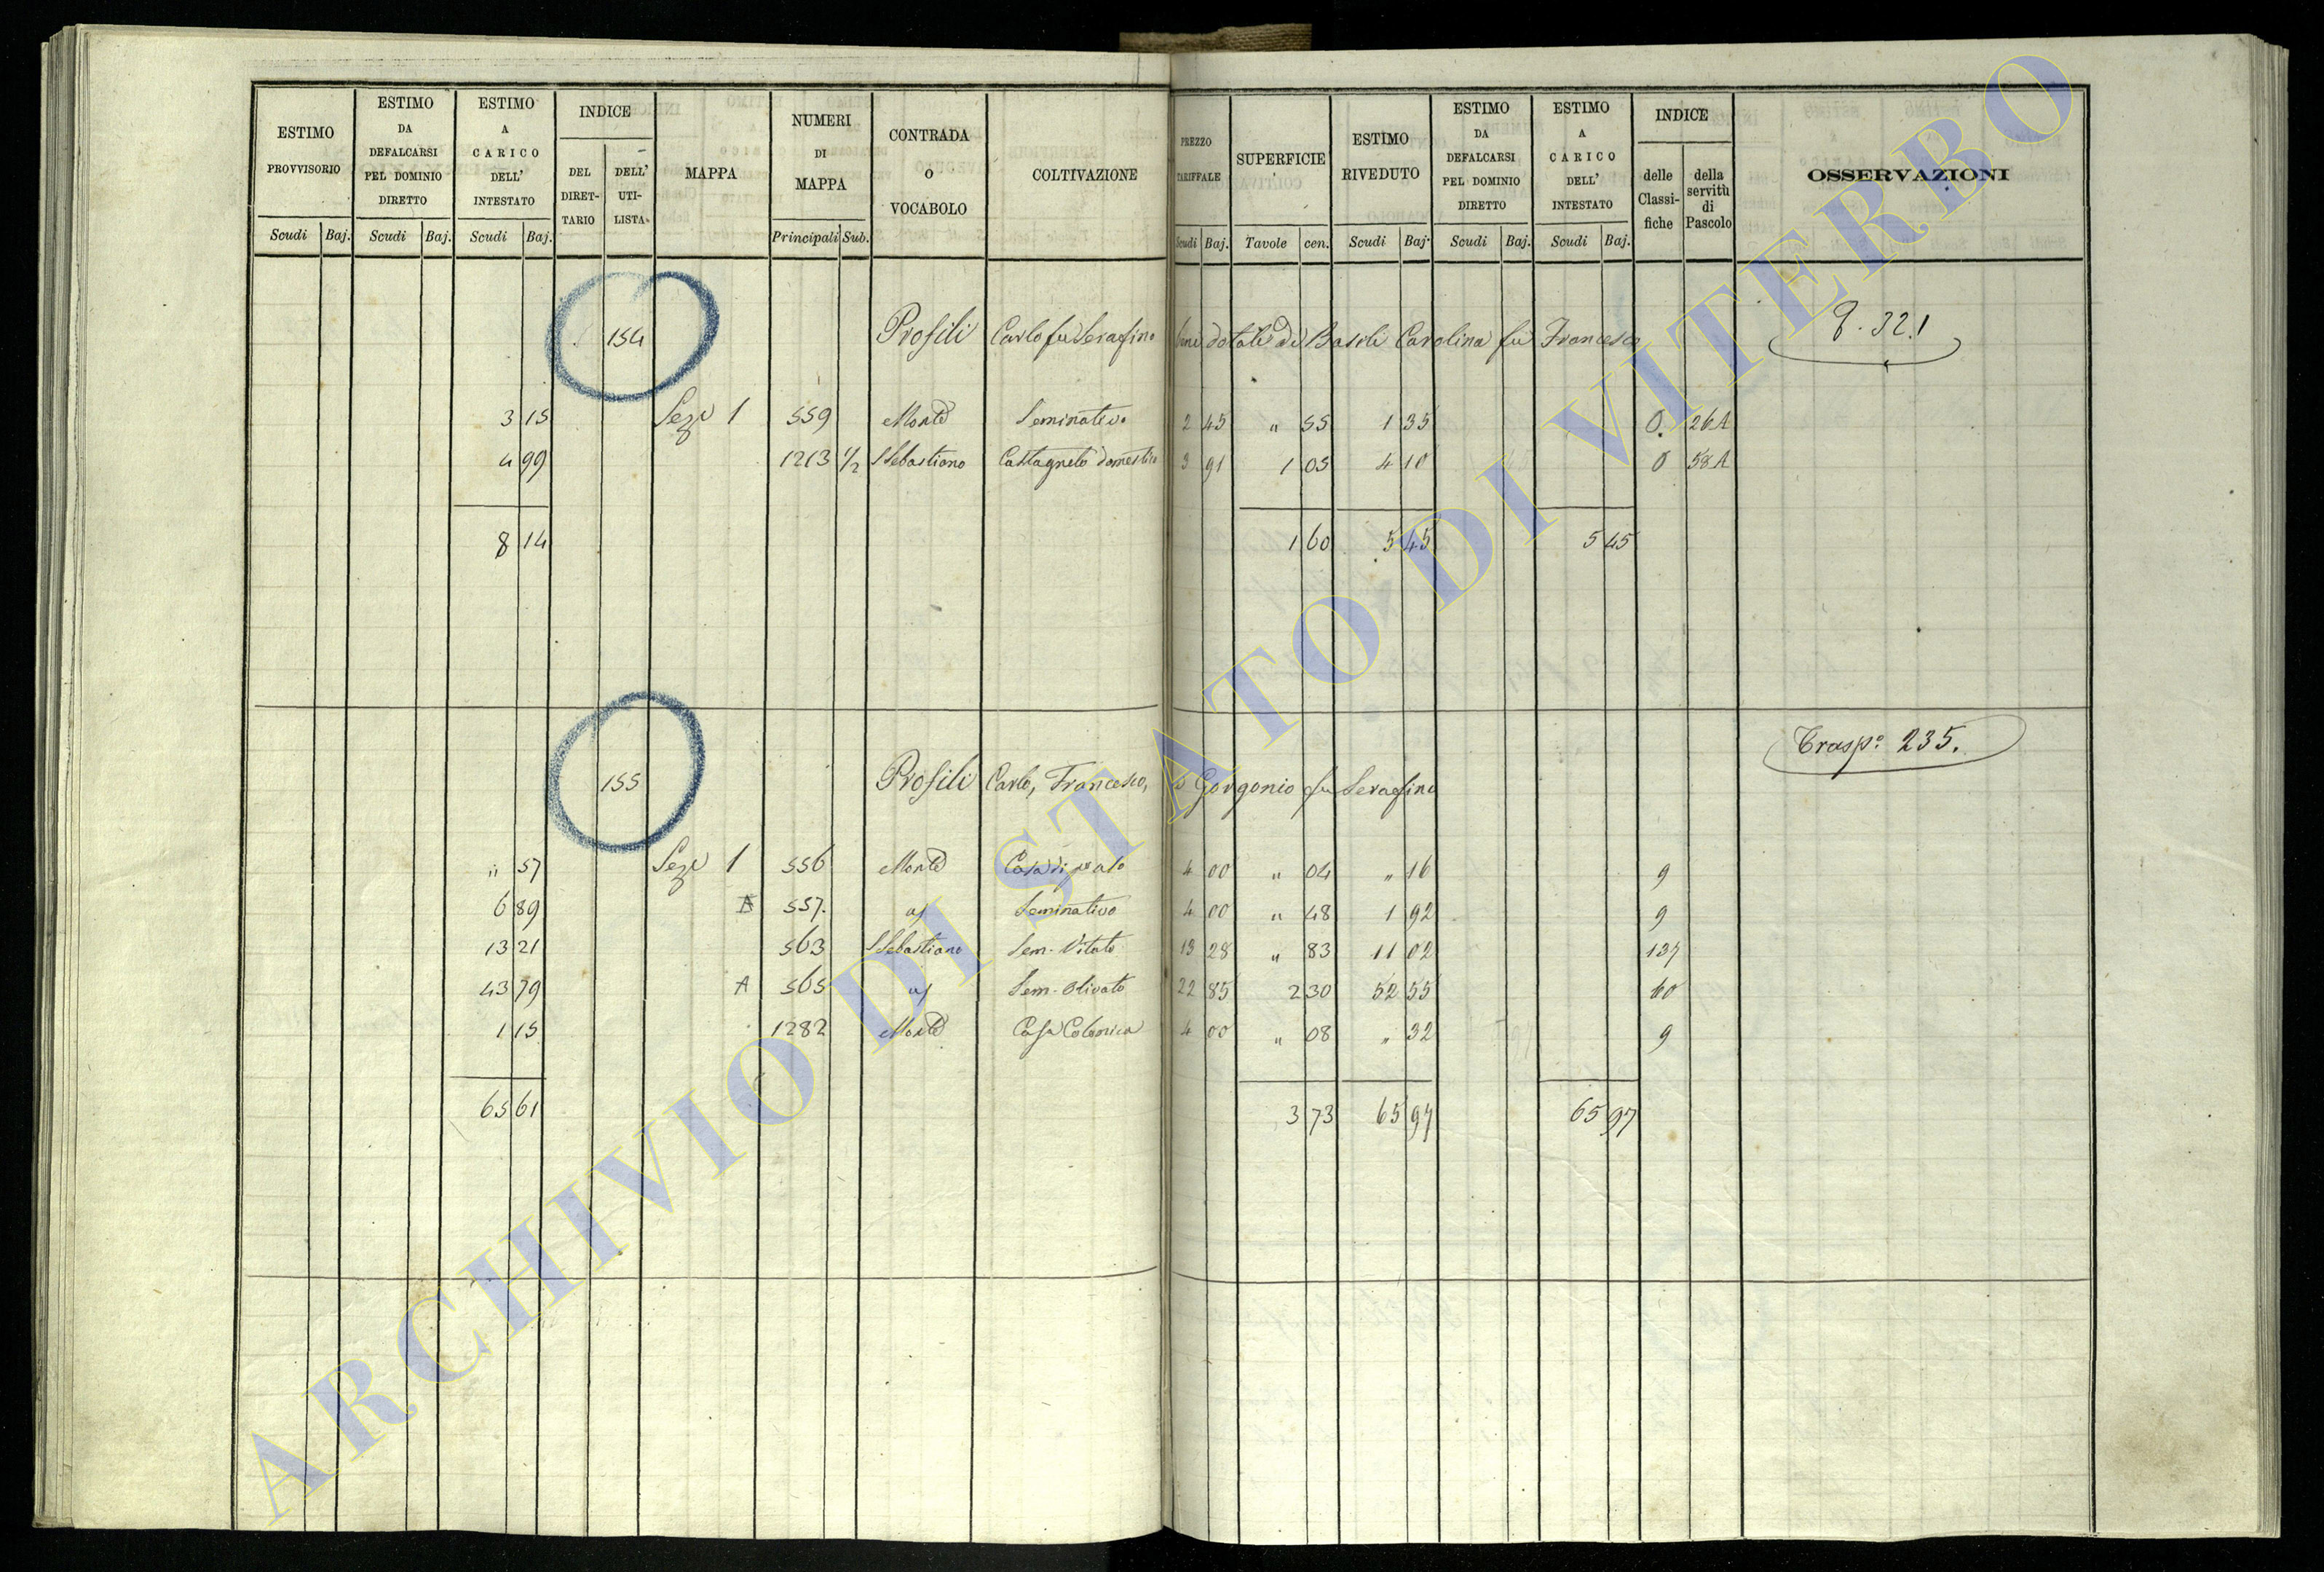 ESTIMO PROVVISORIO Scudi Baj.
ESTIMO DA DEFALCARSI PEL DOMINIO DIRETTO Scudi Baj.
ESTIMO A CARICO DELL' INTESTATO Scudi Baj.
INDICE DEL DIRET-TARIO DELL' UTI-LISTA
MAPPA
NUMERI DI MAPPA Principali Sub.
CONTRADA O VOCABOLO
COLTIVAZIONE
PREZZO TARIFFALE Scudi Baj.
SUPERFICIE Tavole cen.
ESTIMO RIVEDUTO Scudi Baj.
ESTIMO DA DEFALCARSI PEL DOMINIO DIRETTO Scudi Baj.
ESTIMO A CARICO DELL' INTESTATO Scudi Baj.
INDICE delle Classi-fiche della servitù di Pascolo
OSSERVAZIONI
154 Profili Carlo fu Serafino beni dotali di Basili Carolina fu Francesco 321
3 15 Sez 1 559 Monte Seminativo 2 45 " 55 1 35 0 26A
4 99 1213 1/2 S Sebastiano Castagneto domestico 3 91 1 05 4 10 0 58A
8 14 1 60 5 45 5 45
Trasp. 235.
155 Profili Carlo, Francesco, e Gorgonio fu Serafino
" 57 Sez 1 556 Monte Casa di 4 00 " 04 " 16 9
6 89 557. Seminativo 4 00 " 48 1 92 9
13 21 563 S Sebastiano Sem. Vitato 13 28 " 83 11 02 137
43 79 A 565 Sem. Olivato 22 85 2 30 52 55 60
1 15 1282 Monte Casa Colonica 4 00 " 08 " 32 9
65 61 3 73 65 97 65 97
ARCHIVIO DI STATO DI VITERBO